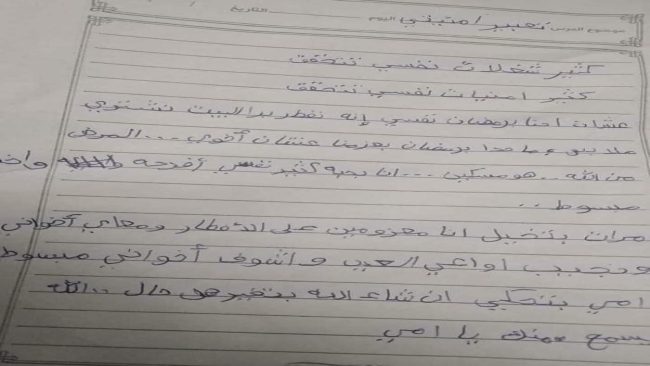 موضوع الدرس تعبير / امنيتي اليوم / / التاريخ
كثير شغلات نفسي تتحقق
كثير امنيات نفسي تتحقق
عشان احنا برمضان نفسي إنه نفطر برا البيت نشتري
ملابس وما حدا برمضان بعزمنا عشان أخوي ... المرض
من الله .. هو مسكين ... انا بحبه كثير نفسي أفرحه
مبسوط ..
مرات بتخيل انا معزومين على الأفطار ومعاي أخواني
ونجيب اواعي العيد واشوف أخواني مبسوط
امي بتحكي ان شاء الله بتغير حال .. الله
يسمع منك يا امي